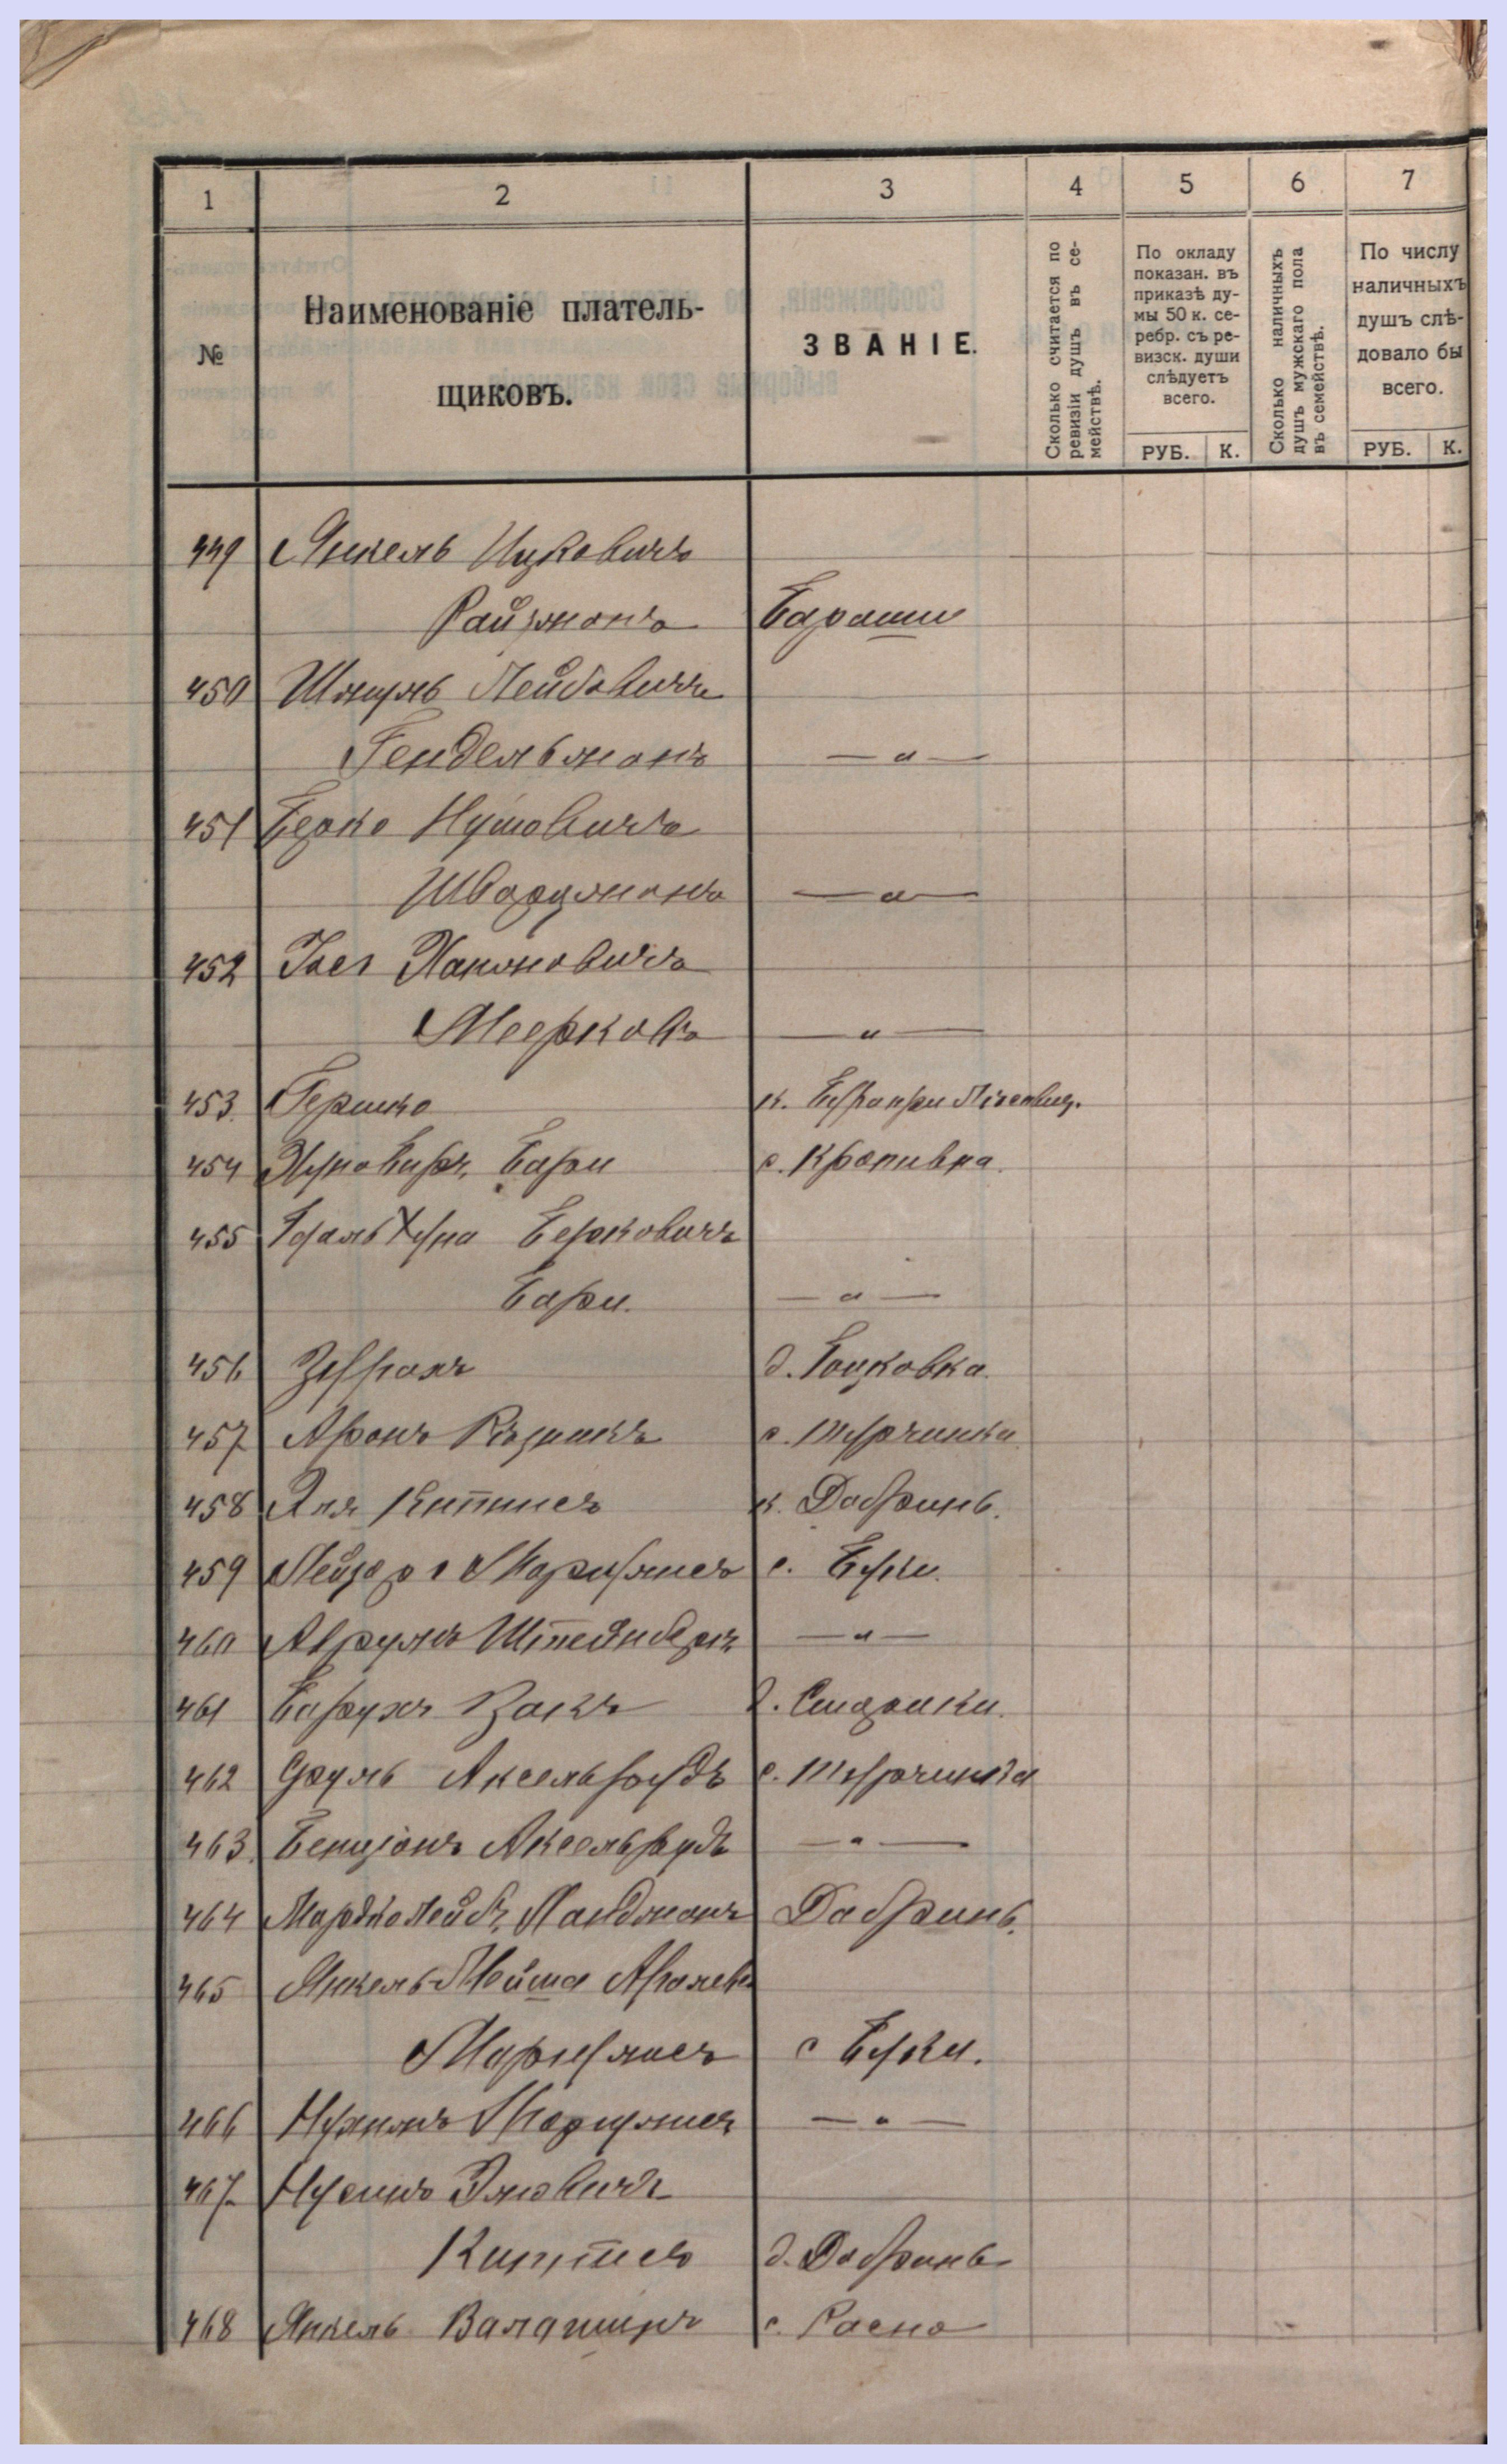 1 2 3 4 5 6 7
№
Наименованіе платель-
щиковъ.
ЗВАНІЕ.
Сколько считается по
ревизіи душъ въ се-
мействѣ.
По окладу
показан. въ
приказѣ ду-
мы 50 к. се-
ребр. съ ре-
визск. души
слѣдуетъ
всего.
РУБ. К.
Сколько наличныхъ
душъ мужскаго пола
въ семействѣ.
По числу
наличныхъ
душъ слѣ-
довало бы
всего.
РУБ. К.
449 Янкель Ицковичъ
Райзманъ Бараши
450 Шмуль Лейбовичъ
Гендельманъ — „ —
451 Берко Нутовичъ
Шварцманъ — „ —
452 Хаимовичъ
Мееровъ — „ —
453 Гершко к.
454 Бари с. Кропивна.
455 Берковичъ
Бари. — „ —
456 д.
457 Аронъ с.
458 Эля Киптисъ к. Добрынь.
459 Лейзоръ Маргулисъ с. Буки.
460 Аврумъ Штейнбергъ — „ —
461 Барухъ Закъ д. Старики.
462 Сруль Аксельрудъ с.
463 Бенціонъ Аксельрудъ — „ —
464 Мордко Лейбъ Ландманъ Добрынь.
465 Янкель-Мойша
Маргулисъ с Буки.
466 Нухимъ Маргулисъ — „ —
467 Нусинъ Эльовичъ
Киптисъ д. Добрынь
468 Янкель с. Расно